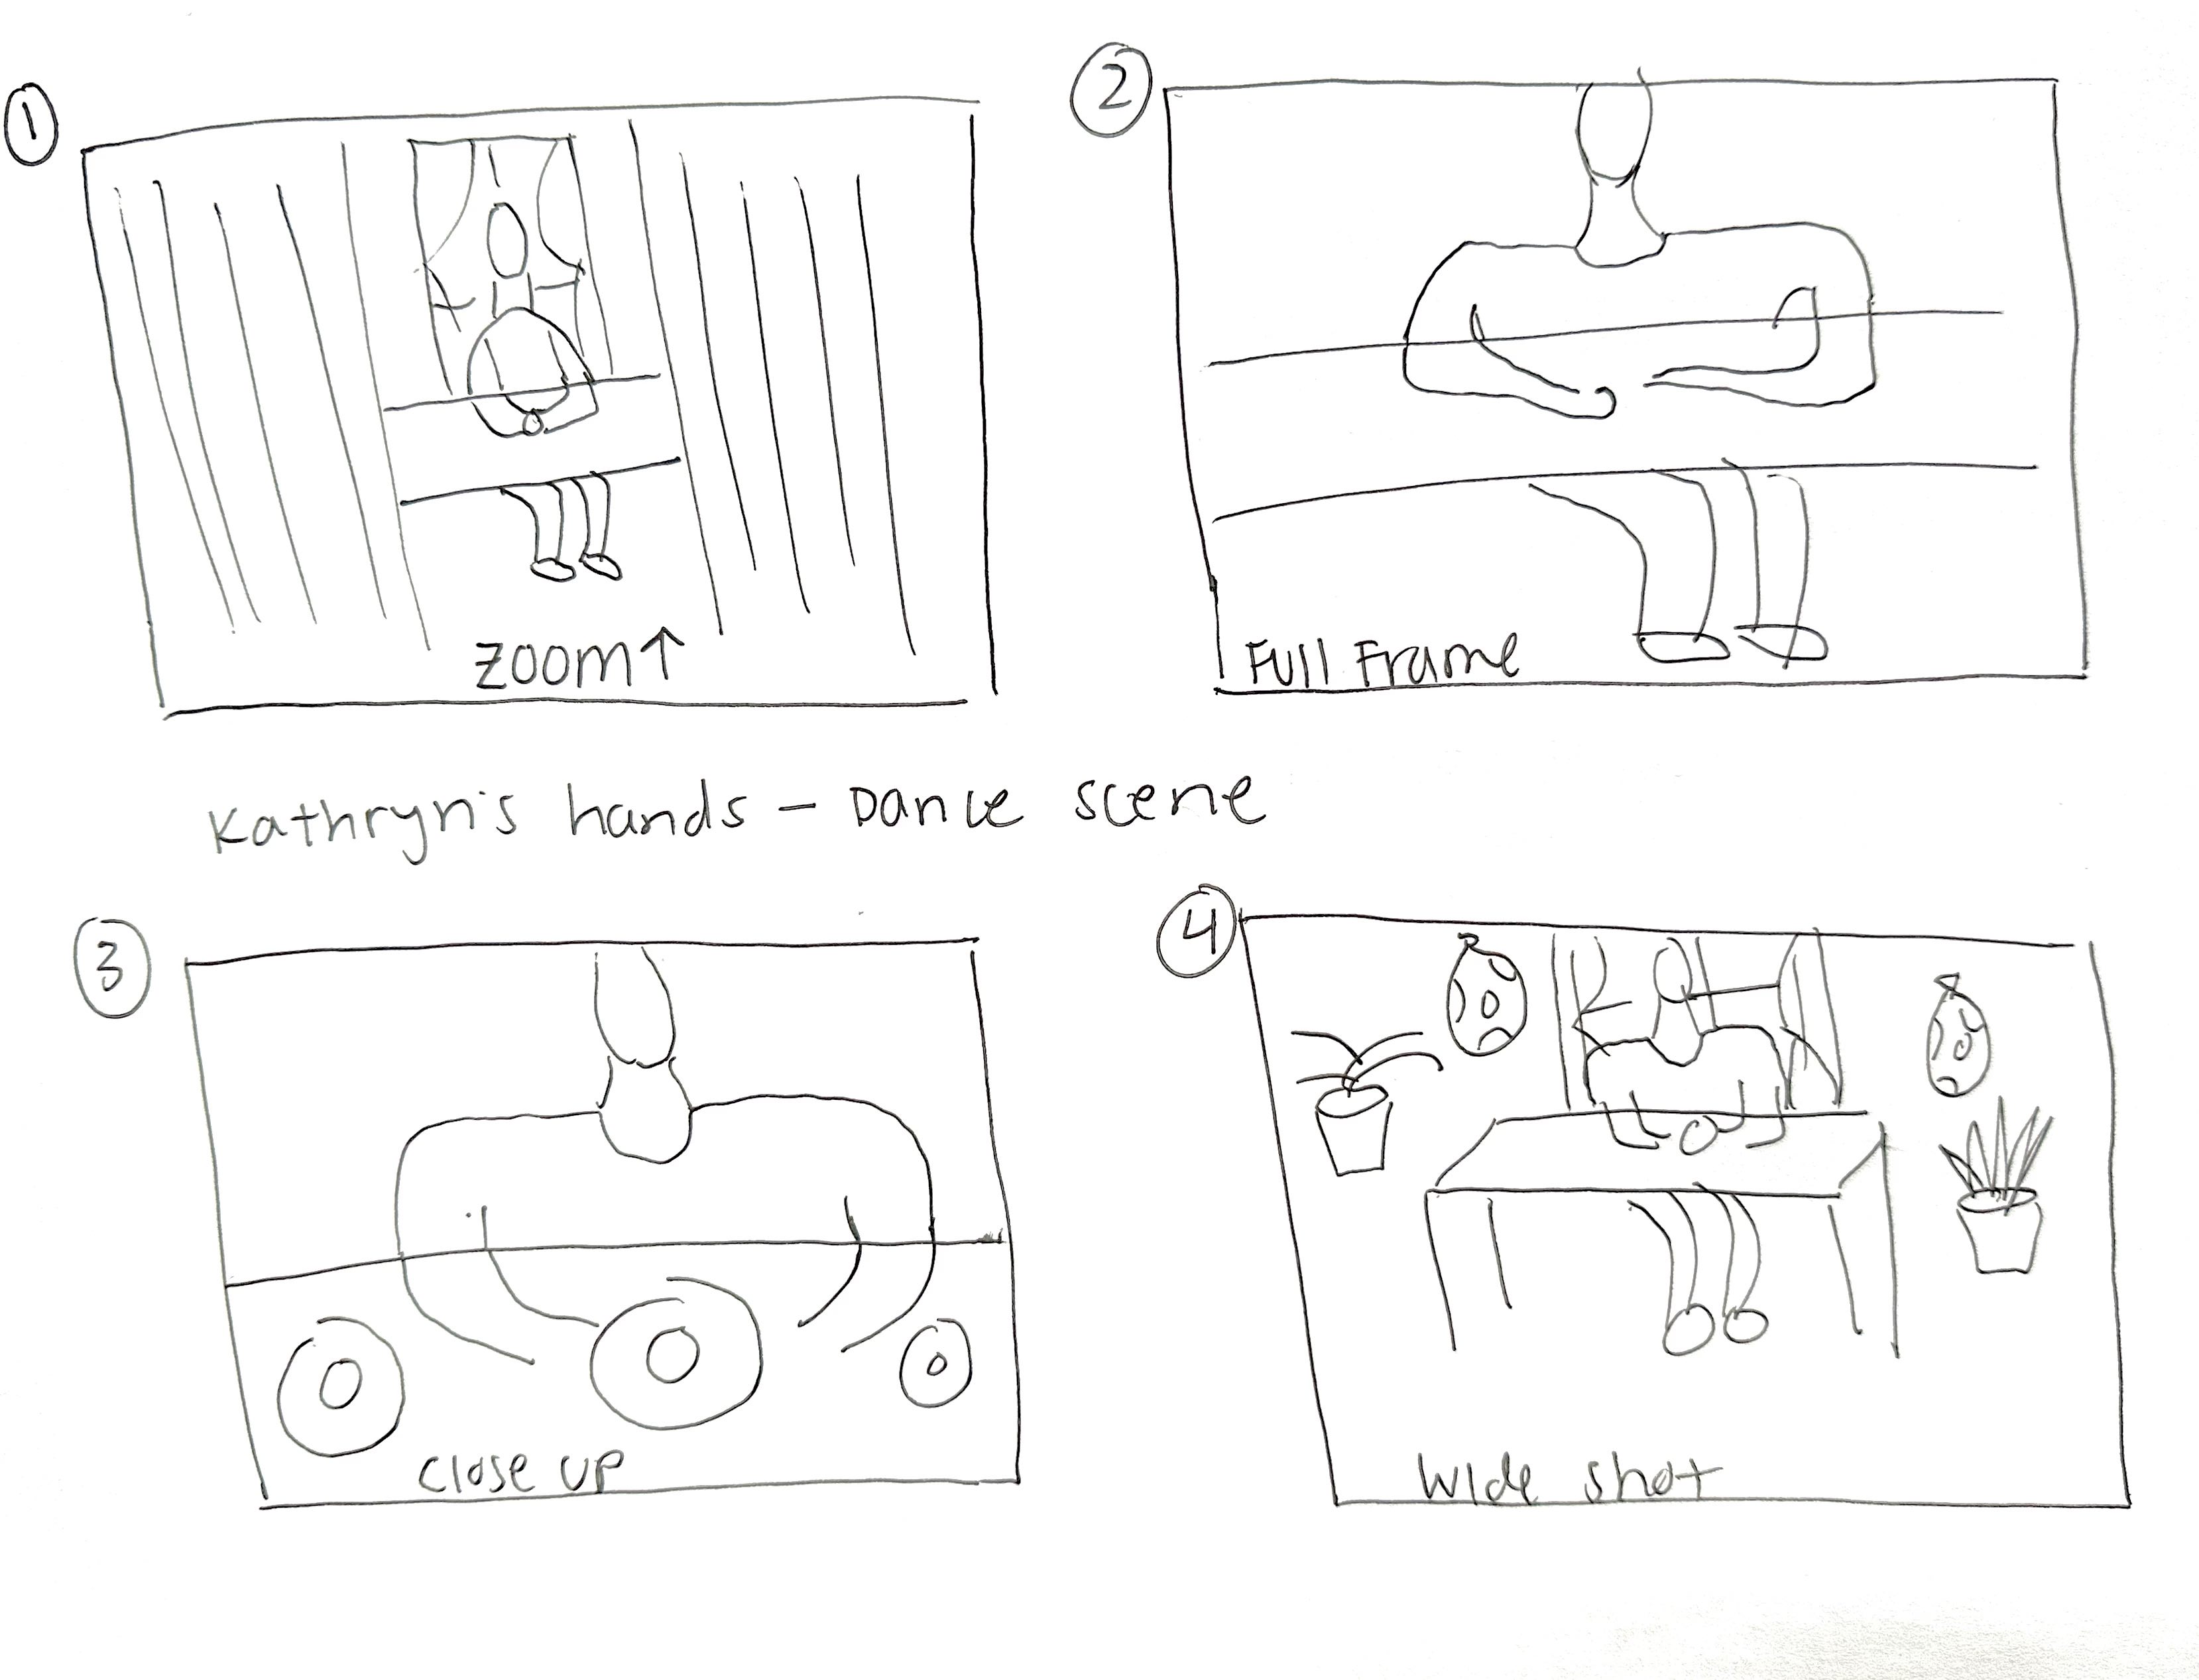 1
2
ZOOM↑
Full Frame
Kathryn's hands - Dance scene
3
4
Close UP
Wide shot